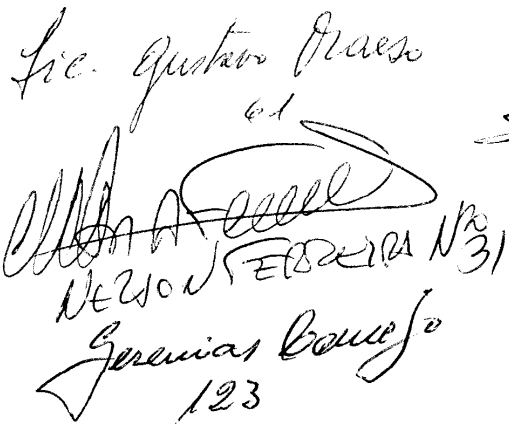 Lic. Gustavo Maeso
61
NELSON FERREIRA Nº 31
Jeremias Cornejo
123